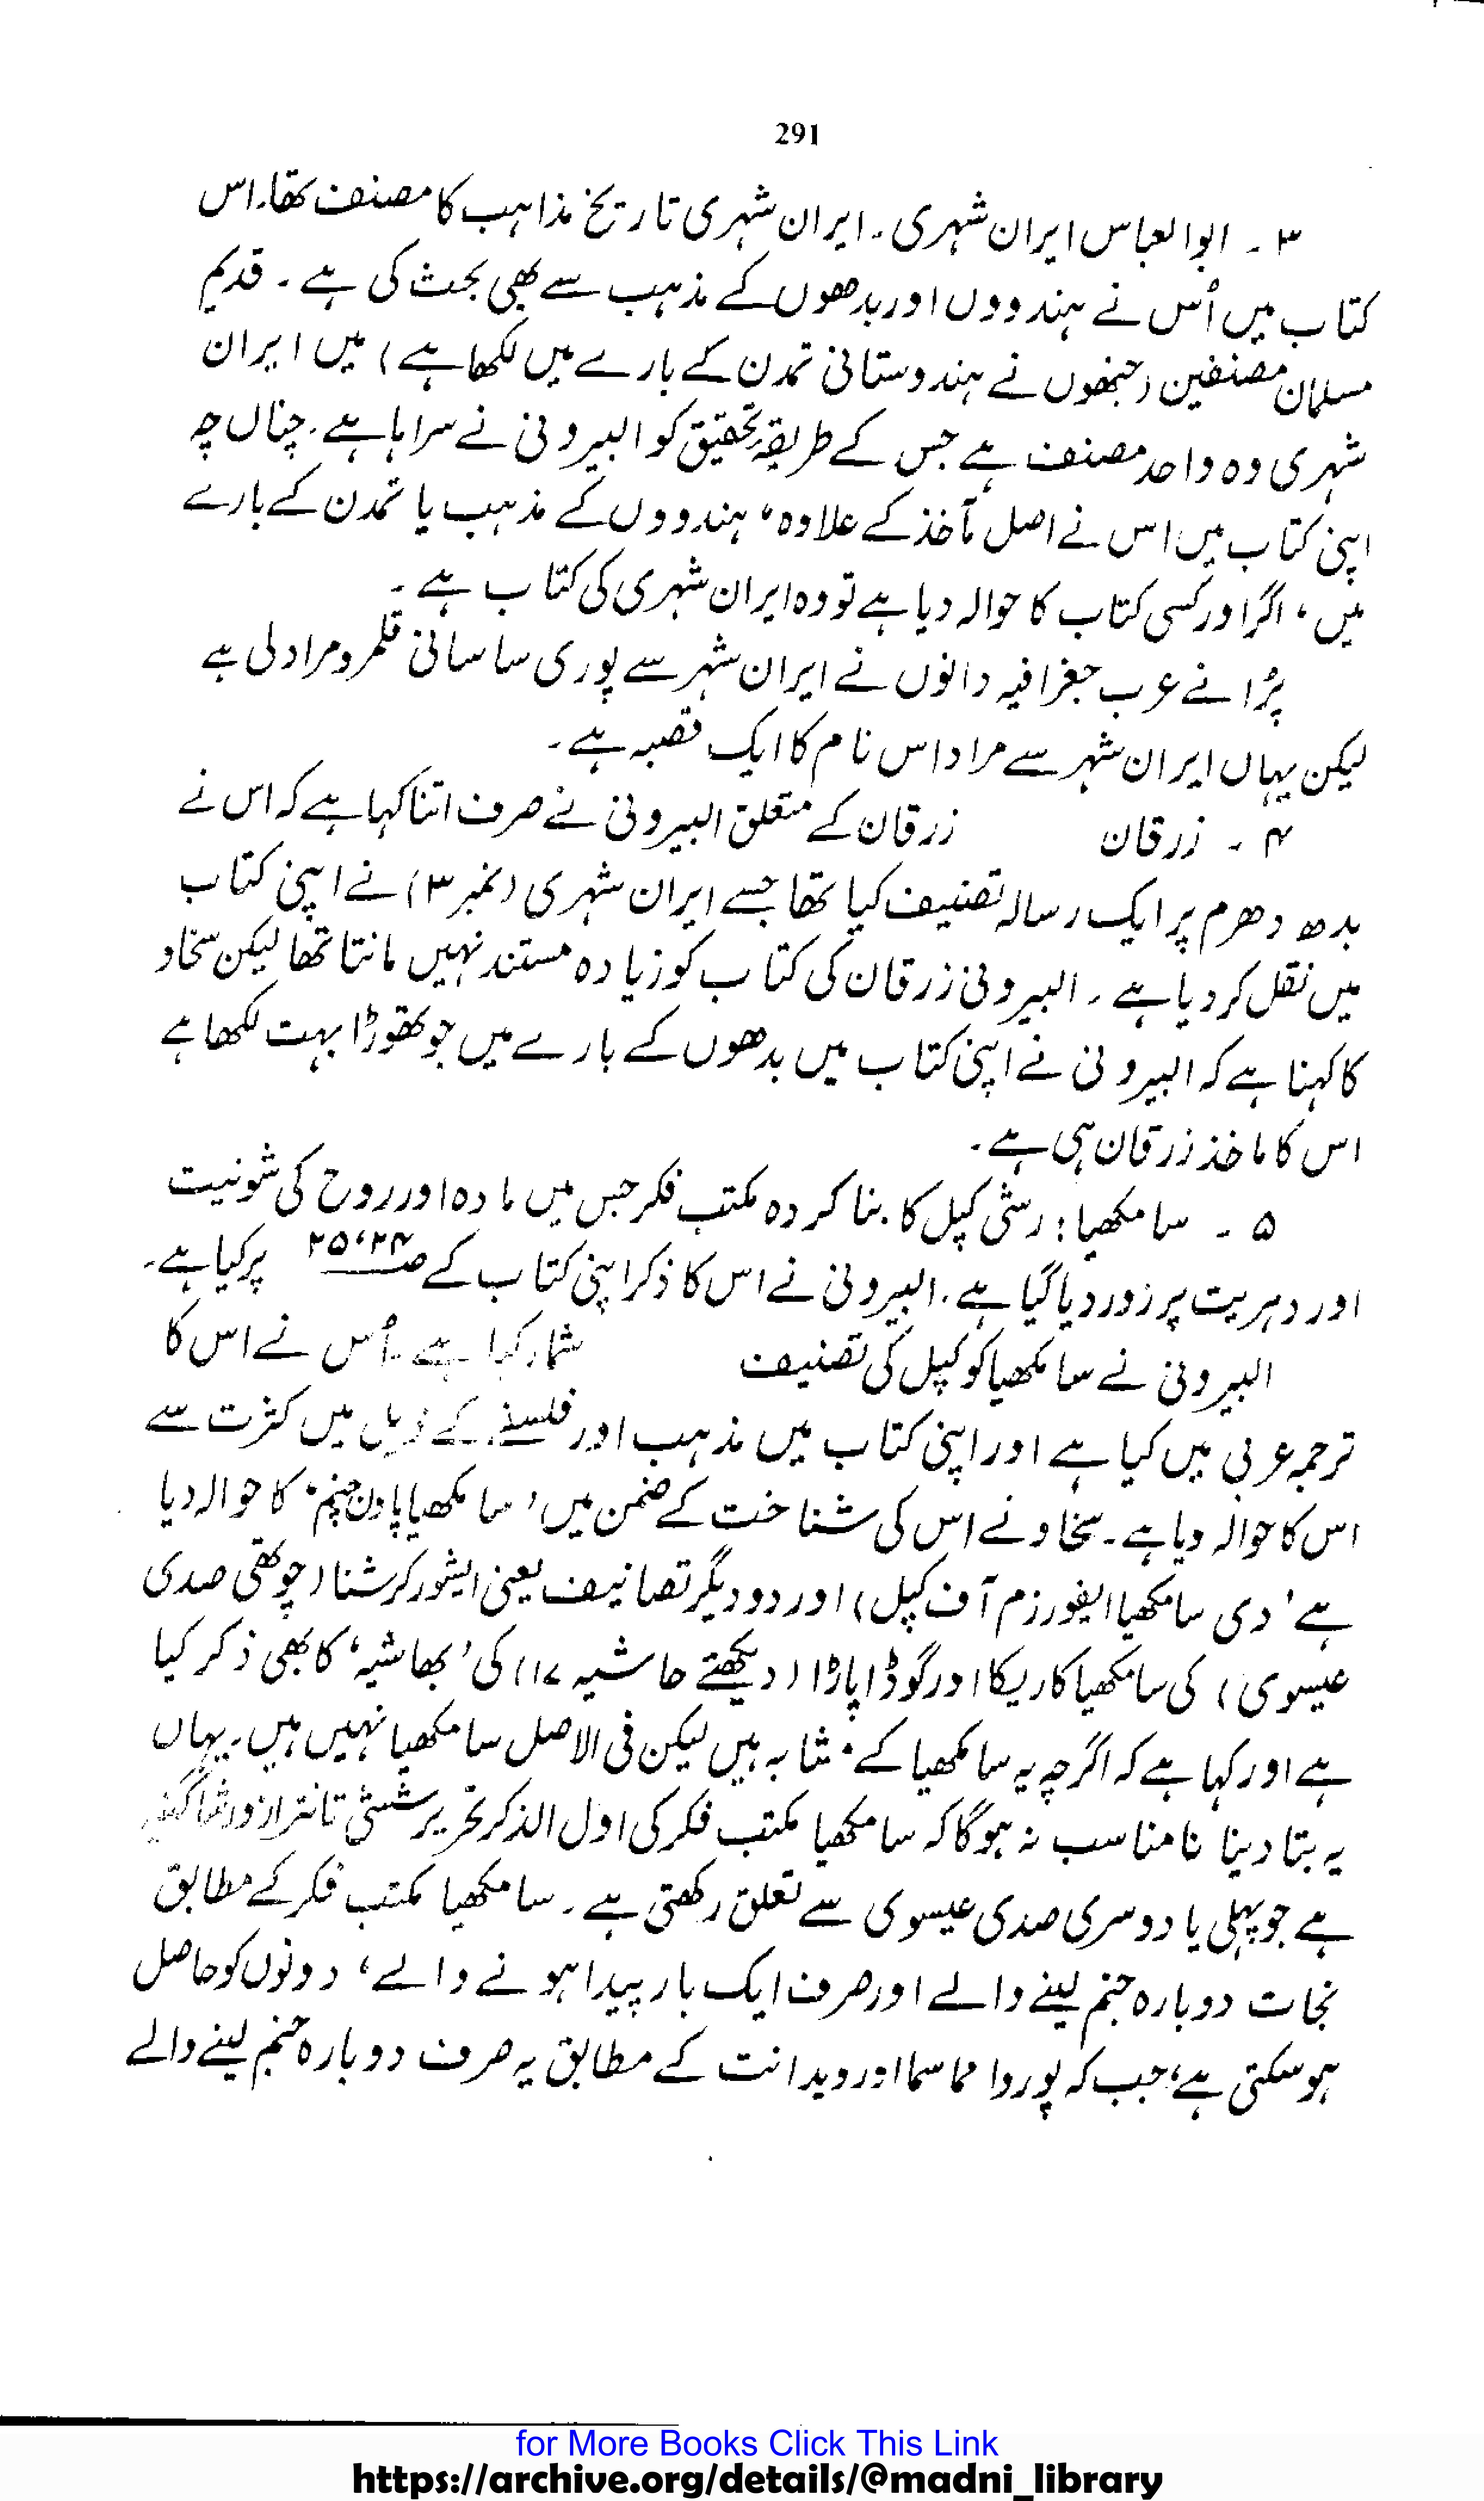 291
۳ ۔ ابوالعباس ایران شہری ۔ ایران شہری تاریخ مذاہب کا مصنف تھا۔ اس
کتاب میں اُس نے ہندووں اور بدھوں کے مذہب سے بھی بحث کی ہے ۔ قدیم
مسلمان مصنفین (جنھوں نے ہندوستانی تمدن کے بارے میں لکھا ہے) میں ایران
شہری وہ واحد مصنف ہے جس کے طریقۂ تحقیق کو البیرونی نے سراہا ہے۔ چناں چہ
اپنی کتاب میں اس نے اصل مآخذ کے علاوہ، ہندووں کے مذہب یا تمدن کے بارے
میں، اگر اور کسی کتاب کا حوالہ دیا ہے تو وہ ایران شہری کی کتاب ہے ۔
پُرانے عرب جغرافیہ دانوں نے ایران شہر سے پوری ساسانی قلمرو مراد لی ہے
لیکن یہاں ایران شہر سے مراد اس نام کا ایک قصبہ ہے ۔
۴ ۔ زرقان زرقان کے متعلق البیرونی نے صرف اتنا کہا ہے کہ اس نے
بدھ دھرم پر ایک رسالہ تصنیف کیا تھا جسے ایران شہری (نمبر ۳) نے اپنی کتاب
میں نقل کر دیا ہے ۔ البیرونی زرقان کی کتاب کو زیادہ مستند نہیں مانتا تھا لیکن سخاو
کا کہنا ہے کہ البیرونی نے اپنی کتاب میں بدھوں کے بارے میں جو تھوڑا بہت لکھا ہے
اس کا ماخذ زرقان ہی ہے ۔
۵ ۔ سامکھیا : رشی کپل کا بنا کردہ مکتب فکر جس میں مادہ اور روح کی ثنویت
اور دہریت پر زور دیا گیا ہے ۔ البیرونی نے اس کا ذکر اپنی کتاب کے صـ ۲۴، ۲۵ پر کیا ہے۔
البیرونی نے سامکھیا کو کپل کی تصنیف شمار کیا ہے ۔ اُس نے اس کا
ترجمہ عربی میں کیا ہے اور اپنی کتاب میں مذہب اور فلسفے کے ذیل میں کثرت سے
اس کا حوالہ دیا ہے ۔ سخاو نے اس کی شناخت کے ضمن میں ' سامکھیا کا حوالہ دیا
ہے ' دی سامکھیا ایفورزم آف کپل) اور دو دیگر تصانیف یعنی ایشور کرشنا (چوتھی صدی
عیسوی) کی سامکھیا کاریکا اور گوڈاپاڈا (دیکھئے حاشیہ ۱۷) کی ' بھاشیہ ' کا بھی ذکر کیا
ہے اور کہا ہے کہ اگرچہ یہ سامکھیا کے مشابہ ہیں لیکن فی الاصل سامکھیا نہیں ہیں ۔ یہاں
یہ بتا دینا نامناسب نہ ہوگا کہ سامکھیا مکتب فکر کی اول الذکر تحریر ششٹی تانترا از
ہے جو پہلی یا دوسری صدی عیسوی سے تعلق رکھتی ہے ۔ سامکھیا مکتب فکر کے مطابق
نجات دوبارہ جنم لینے والے اور صرف ایک بار پیدا ہونے والے، دونوں کو حاصل
ہو سکتی ہے؛ جب کہ پوروا مماسما اور ویدانت کے مطابق یہ صرف دوبارہ جنم لینے والے
for More Books Click This Link
https://archive.org/details/@madni_library